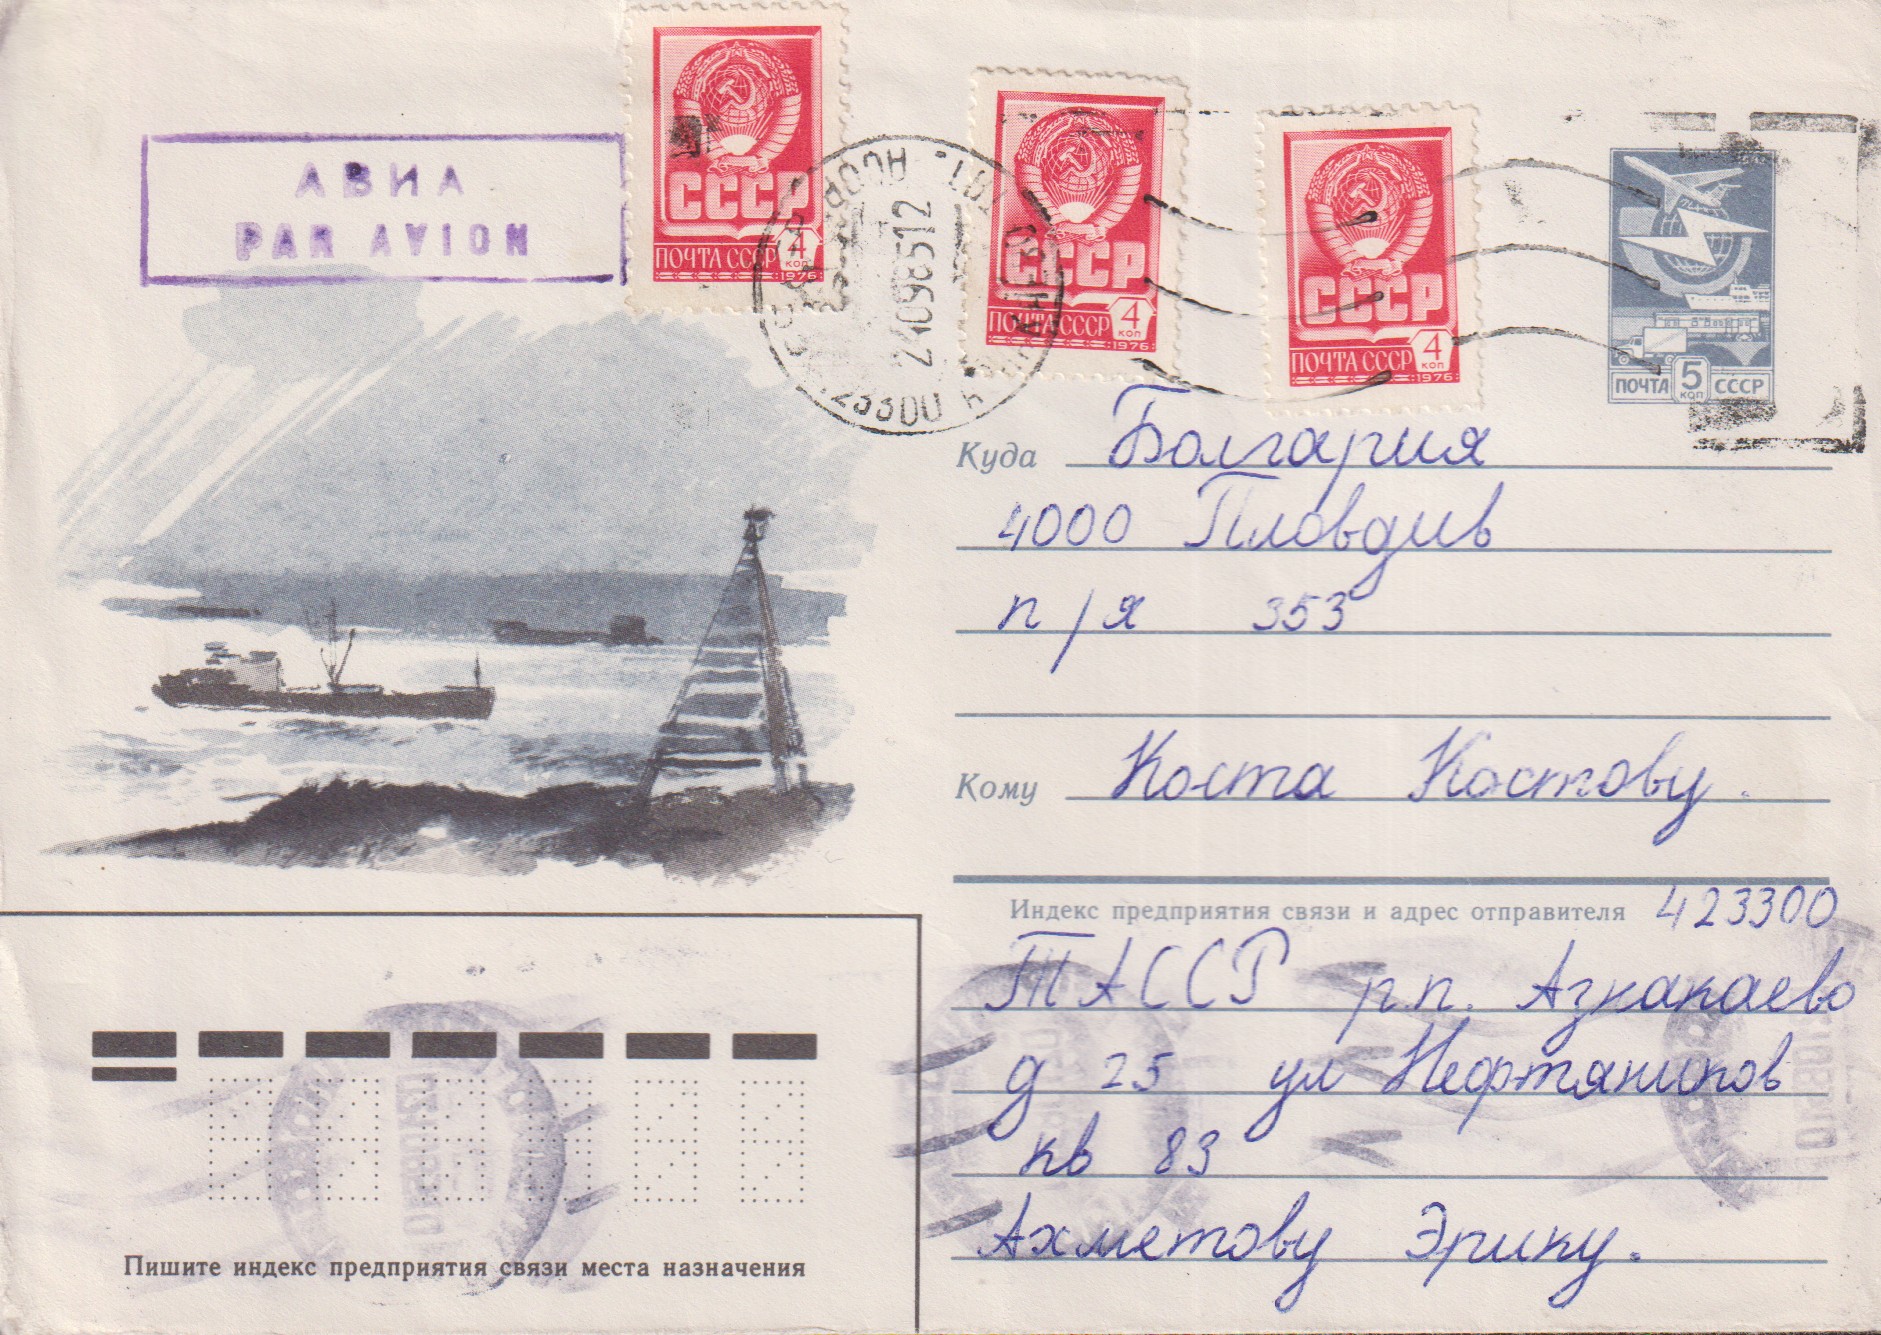 АВИА
PAR AVION
СССР
ПОЧТА СССР 4 КОП
1976
СССР
ПОЧТА СССР 4 КОП
1976
СССР
ПОЧТА СССР 4 КОП
1976
ПОЧТА 5 КОП СССР
24098512
423300
Куда Болгария
4000 Пловдив
п/я 353
Кому Коста Костову.
Индекс предприятия связи и адрес отправителя 423300
ТАССР р.п. Азнакаево
д 25 ул Нефтяников
кв 83
Ахметову Эрику.
Пишите индекс предприятия связи места назначения